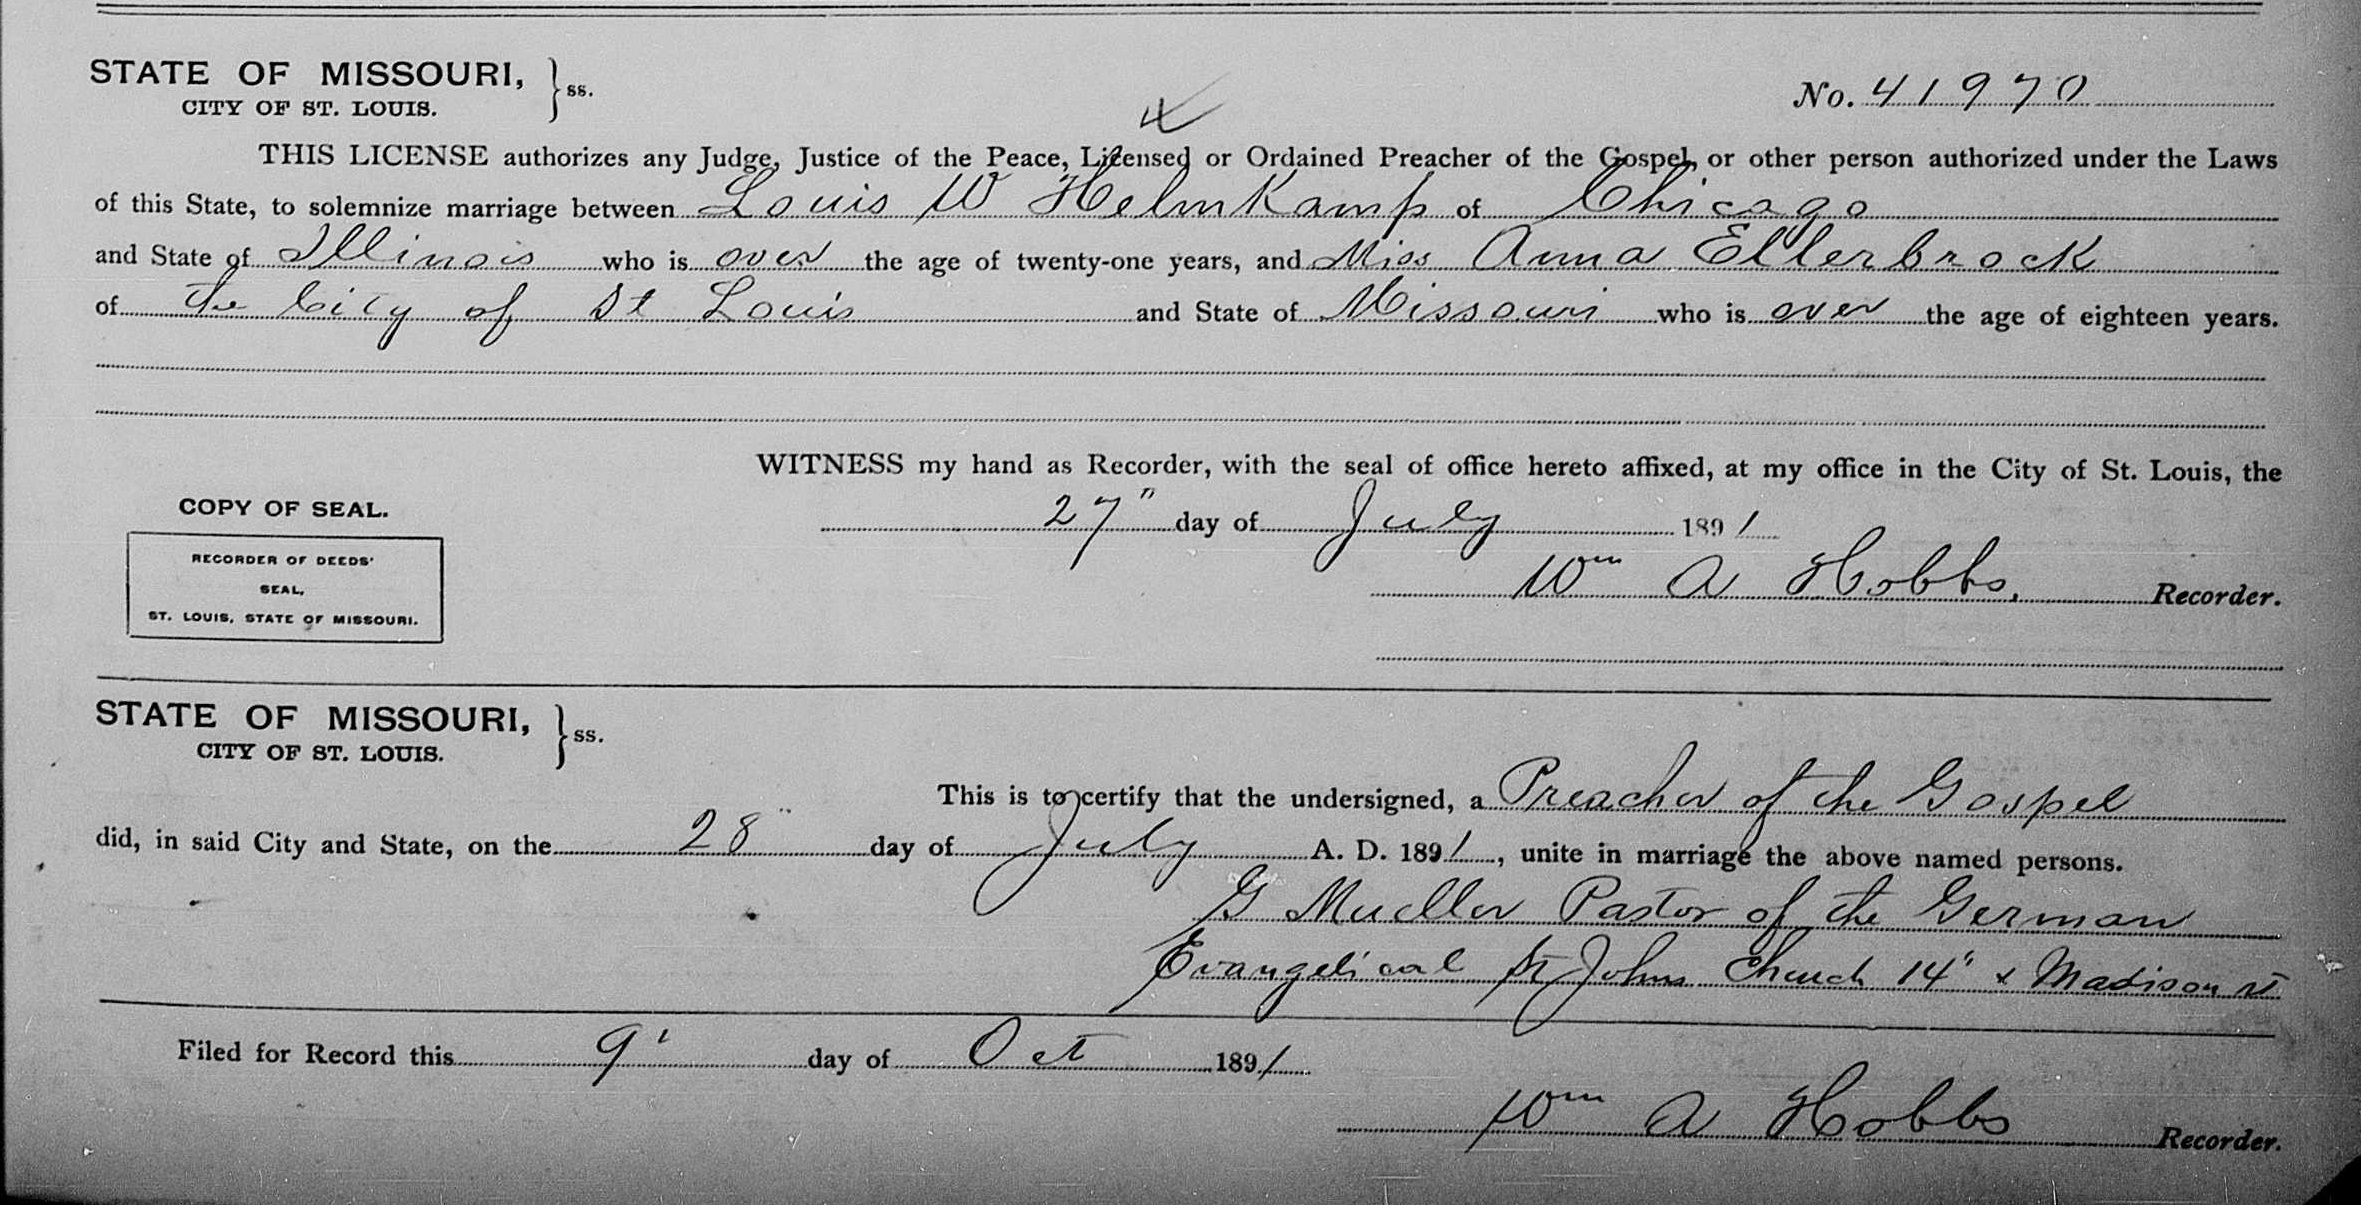 STATE OF MISSOURI, } ss.
CITY OF ST. LOUIS.
No. 41970
THIS LICENSE authorizes any Judge, Justice of the Peace, Licensed or Ordained Preacher of the Gospel, or other person authorized under the Laws
of this State, to solemnize marriage between Louis W Helmkamp of Chicago
and State of Illinois who is over the age of twenty-one years, and Miss Anna Ellerbrock
of the City of St Louis and State of Missouri who is over the age of eighteen years.
WITNESS my hand as Recorder, with the seal of office hereto affixed, at my office in the City of St. Louis, the
27" day of July 1891
Wm A Hobbs. Recorder.
COPY OF SEAL.
RECORDER OF DEEDS'
SEAL,
ST. LOUIS, STATE OF MISSOURI.
STATE OF MISSOURI, } ss.
CITY OF ST. LOUIS.
This is to certify that the undersigned, a Preacher of the Gospel
did, in said City and State, on the 28" day of July A. D. 1891, unite in marriage the above named persons.
G Mueller Pastor of the German
Evangelical St Johns Church 14" & Madison St
Filed for Record this 9' day of Oct 1891
Wm A Hobbs Recorder.